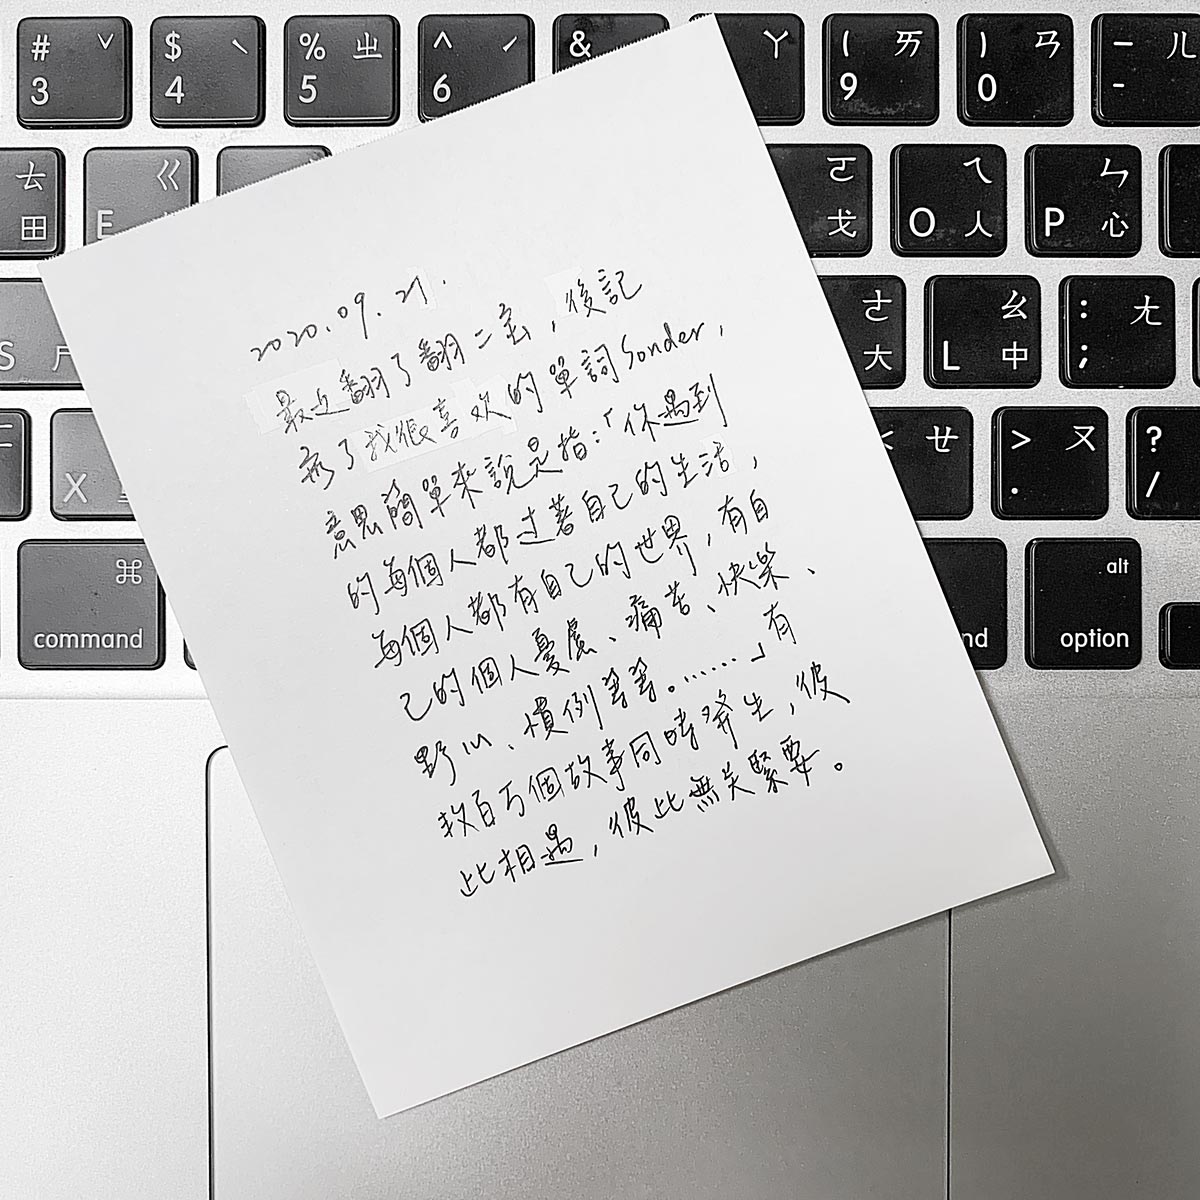 # ˇ $ ˋ % ㄓ ^ ˊ & ㄚ ( ㄞ ) ㄢ — ㄦ
3 4 5 6 9 0 -
ㄊ ㄍ ㄛ ㄟ ㄣ
田 E 戈 O 人 P 心
S ㄋ ㄜ ㄠ : ㄤ
大 L 中 ;
X < ㄝ > ㄡ ?
. /
⌘ alt
command nd option
2020.09.21.
最近翻了翻二,後記
了我很喜欢的單詞Sonder,
意思簡單來說是指:「你遇到
的每個人都过著自己的生活,
每個人都有自己的世界,有自
己的個人憂慮、痛苦、快樂、
野心、慣例等等。……」有
数百万個故事同時発生,彼
此相遇,彼此無关緊要。